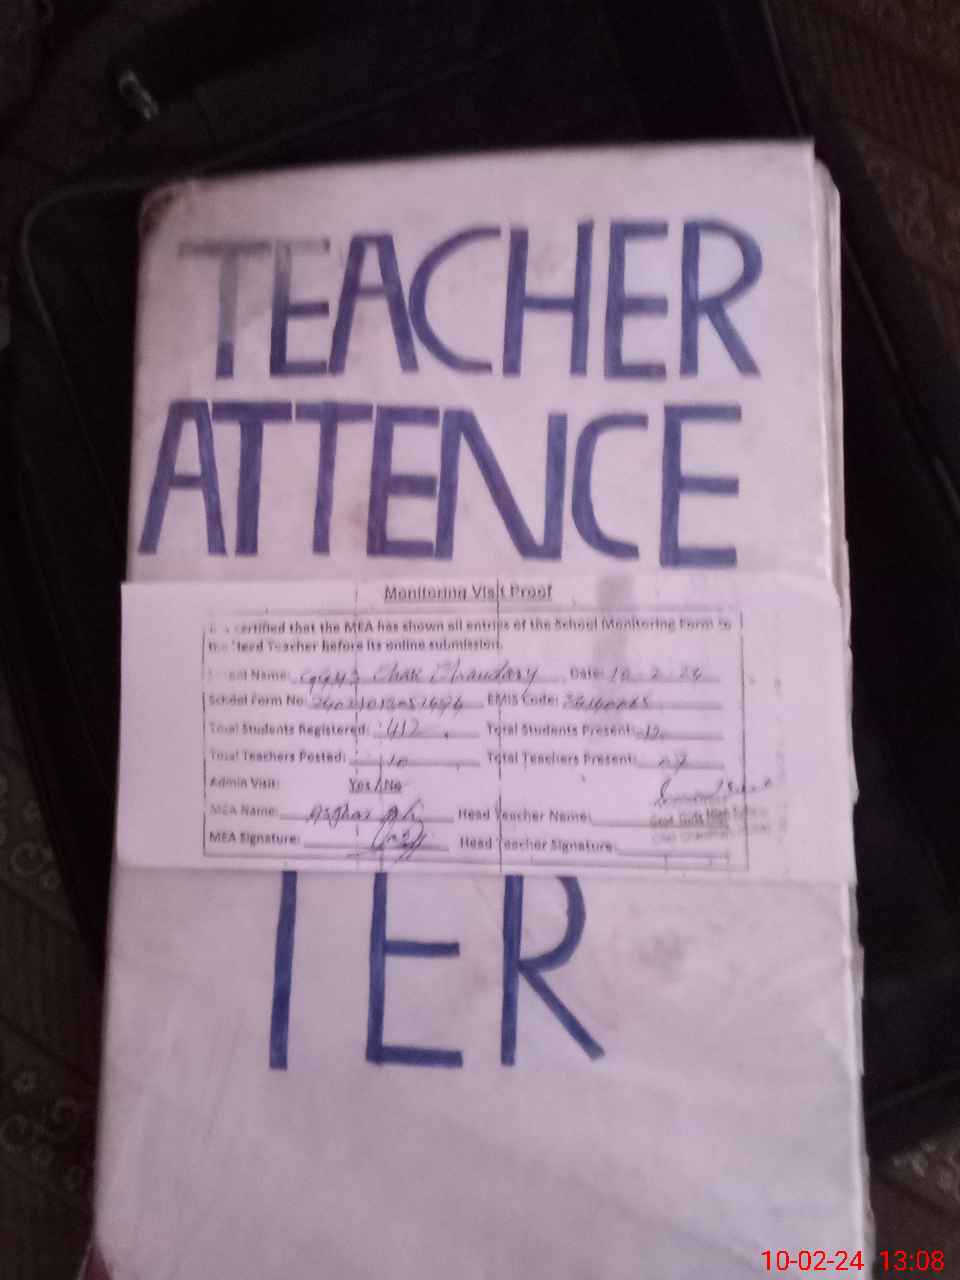 TEACHER
ATTENCE
Monitoring Visit Proof
certified that the MEA has shown all entries of the School Monitoring Form to
Teacher before its online submission.
Name: GGHS Chak Chaudary Date: 10-2-24
School Form No: EMIS Code:
Total Students Registered: 412 Total Students Present:
Total Teachers Posted: 10 Total Teachers Present:
Admin Visit: Yes / No
MEA Name: Asghar Ali Head Teacher Name:
Govt. Girls High
MEA Signature: Head Teacher Signature:
TER
10-02-24 13:08